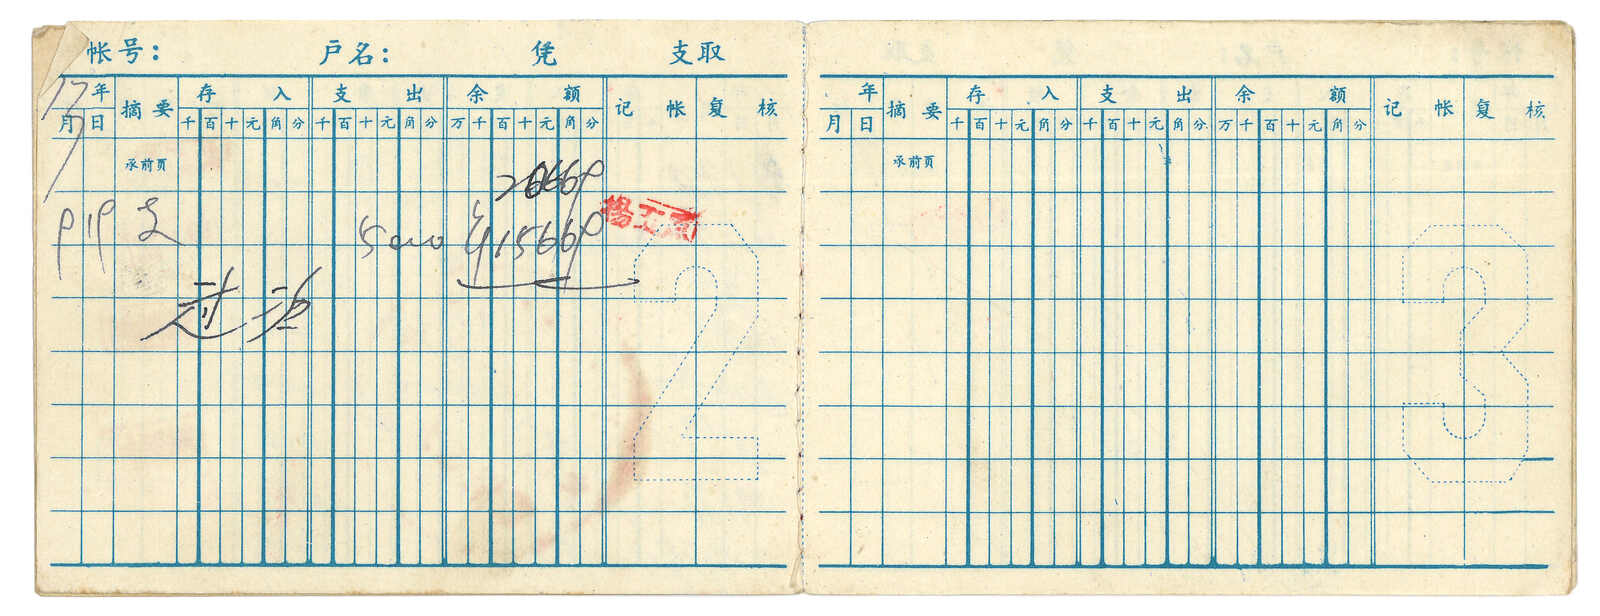 帐号： 户名： 凭 支取
年 摘要 存入 支出 余额 记帐 复核
月 日 千 百 十 元 角 分 千 百 十 元 角 分 万 千 百 十 元 角 分
承前页
支 5000 ¥15660
过次
2
年 摘要 存入 支出 余额 记帐 复核
月 日 千 百 十 元 角 分 千 百 十 元 角 分 万 千 百 十 元 角 分
承前页
3